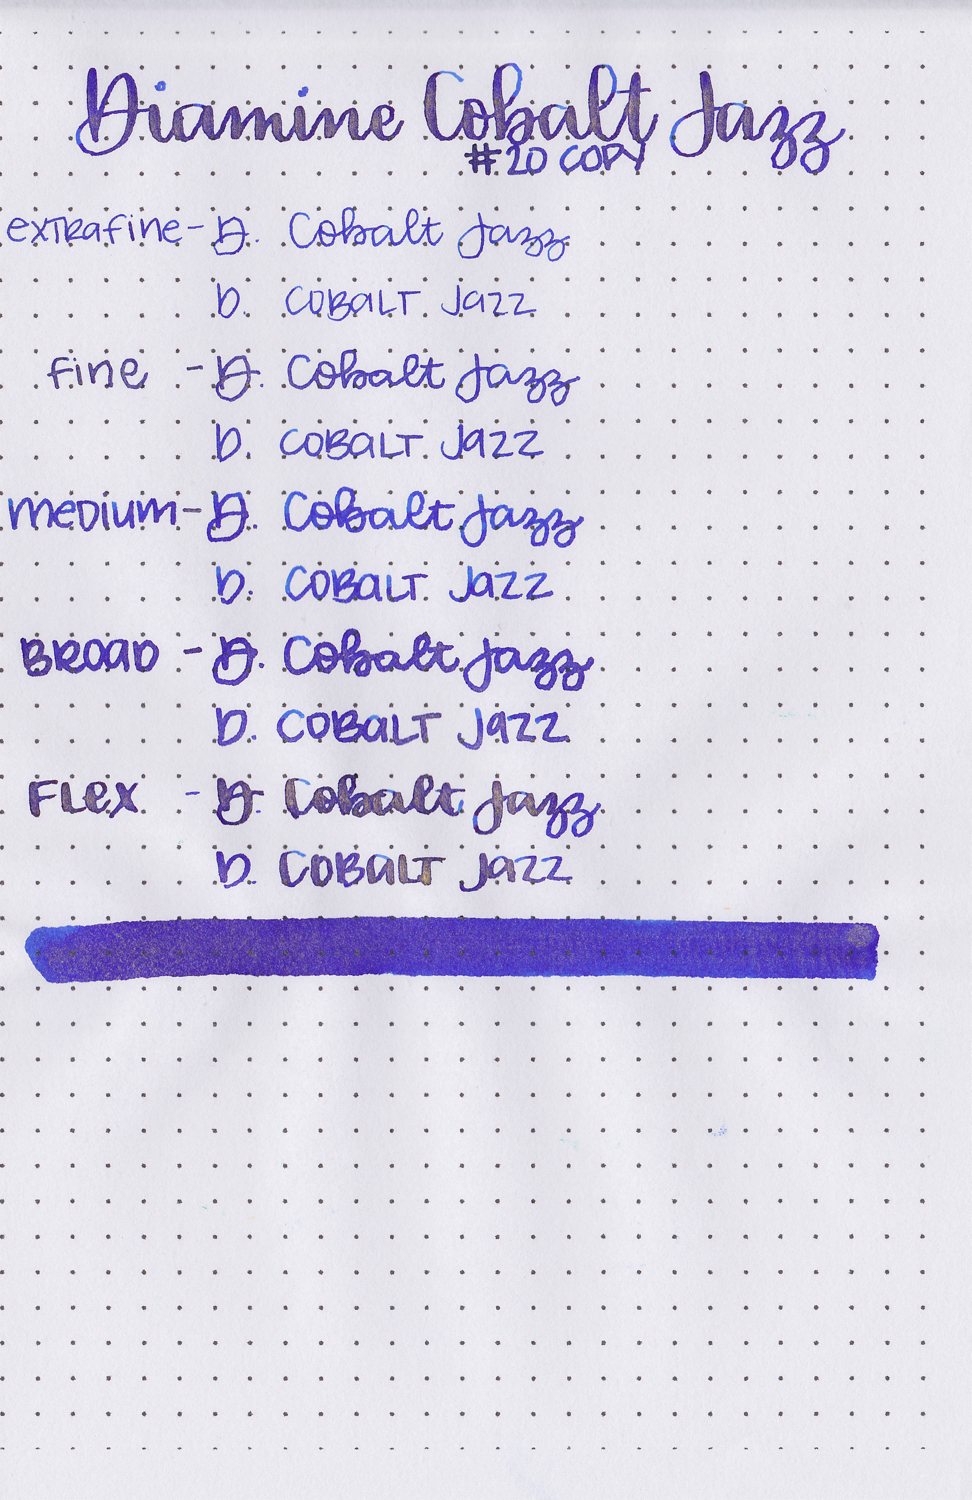 Diamine Cobalt Jazz
#20 COPY
extrafine - D. Cobalt Jazz
D. COBALT JAZZ
fine - D. Cobalt Jazz
D. COBALT JAZZ
medium - D. Cobalt Jazz
D. COBALT JAZZ
BROAD - D. Cobalt Jazz
D. COBALT JAZZ
FLex - D. Cobalt Jazz
D. COBALT JAZZ